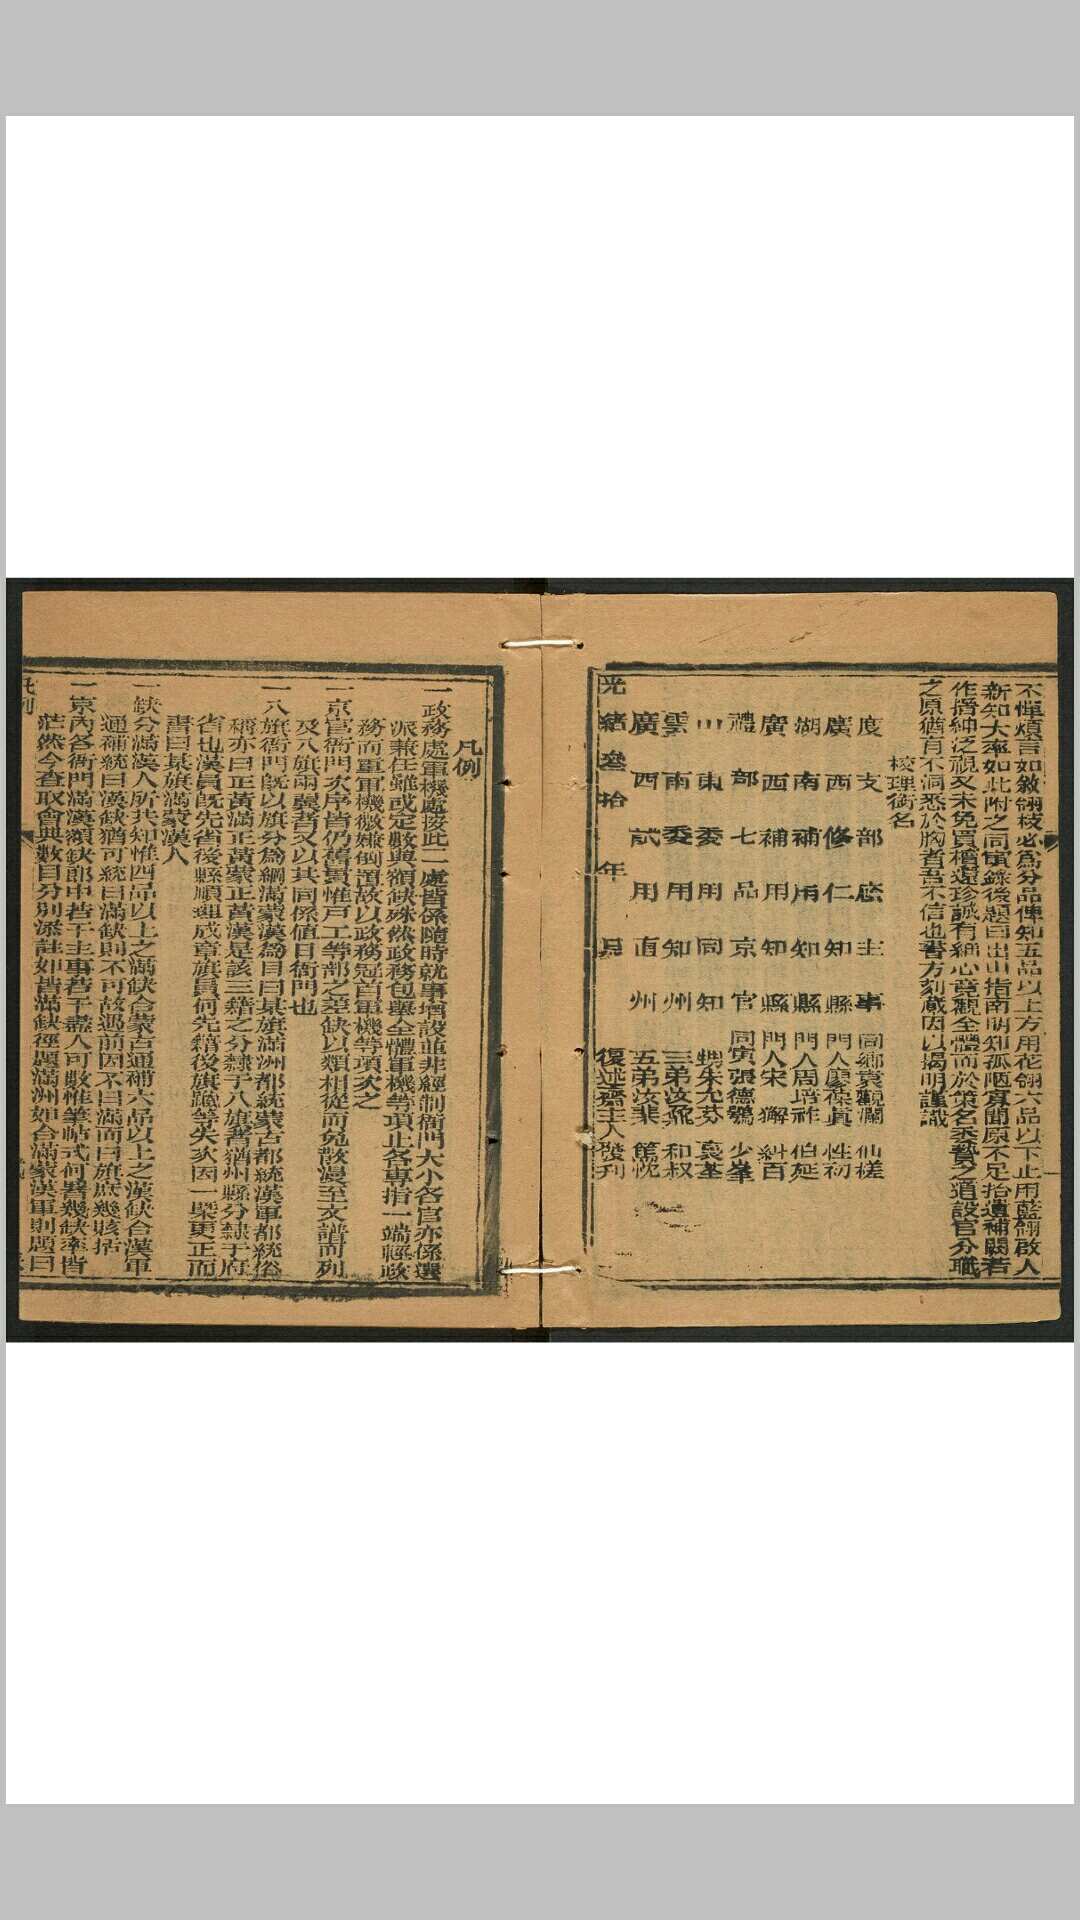 不憚煩言如敘翎枝必爲分品俾知五品以上方用花翎六品以下止用藍翎啟人
新知大率如此附之同寅錄後題曰出山指南明知孤陋寡聞原不足拾遺補闕若
作搢紳泛視又未免買櫝還珍誠有細心竟觀全體而於策名委贄之道設官分職
之原猶有不洞悉於胸者吾不信也書方刻蕆因以揭明謹識
校理銜名
度支部 主事 同鄉袁觀瀾 仙槎
廣西修仁知縣 門人廖葆真 性初
湖南補用知縣 門人周培祚 伯延
廣西補用知縣 門人宋 獬 糾百
禮部七品京官 同寅張德鶚 少峯
山東委用同知 朱允芬 裛荃
雲南委用知州 三弟汝鼐 和叔
廣西試用直州 五弟汝棐 篤忱
光緒叄拾 年 月 復述齋主人發刊
凡例
一政務處軍機處按此二處皆係隨時就事增設並非經制衙門大小各官亦係選
派兼任雖或定數與額缺殊然政務包舉全體軍機等項止各專指一端輕政
務而重軍機微嫌倒置故以政務冠首軍機等項次之
一京官衙門次序皆仍舊貫惟戶工等部之差缺以類相從而免散漫至文譜而列
及八旗兩翼者又以其同係值日衙門也
一八旗衙門既以旗分爲綱滿蒙漢爲目曰某旗滿洲都統蒙古都統漢軍都統俗
稱亦曰正黃滿正黃蒙正黃漢是該三籍之分隸于八旗者猶州縣分隸于府
省也漢員既先省後縣順理成章旗員何先籍後旗躐等失次因一槩更正而
書曰某旗滿蒙漢人
一缺分滿漢人所共知惟四品以上之滿缺合蒙古通補六品以上之漢缺合漢軍
通補統曰漢缺猶可統曰滿缺則不可故遇前因不曰滿而曰旗庶幾賅括
一京內各衙門滿漢額缺郎中若干主事若干盡人可數惟筆帖式何署幾缺率皆
茫然今查取會典數目分別添註如皆滿缺徑題滿洲如合滿蒙漢軍則題曰
凡例